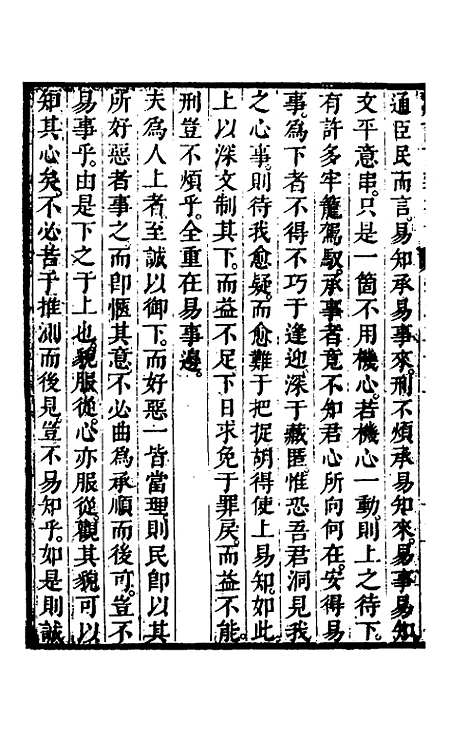 通臣民而言易知承易事來刑不煩承易知來易事易知
文平意串只是一箇不用機心若機心一動則上之待下
有許多牢籠駕馭承事者竟不知君心所向何在安得易
事為下者不得不巧于逢迎深于藏匿惟恐吾君洞見我
之心事則待我愈疑而愈難于把捉胡得使上易知如此
上以深文制其下而益不足下日求免于罪戾而益不能
刑豈不煩乎全重在易事邊
夫為人上者至誠以御下而好惡一皆當理則民即以其
所好惡者事之而即愜其意不必曲為承順而後可豈不
易事乎由是下之于上也貌服從心亦服從觀其貌可以
知其心矣不必苦于推測而後見豈不易知乎如是則誠